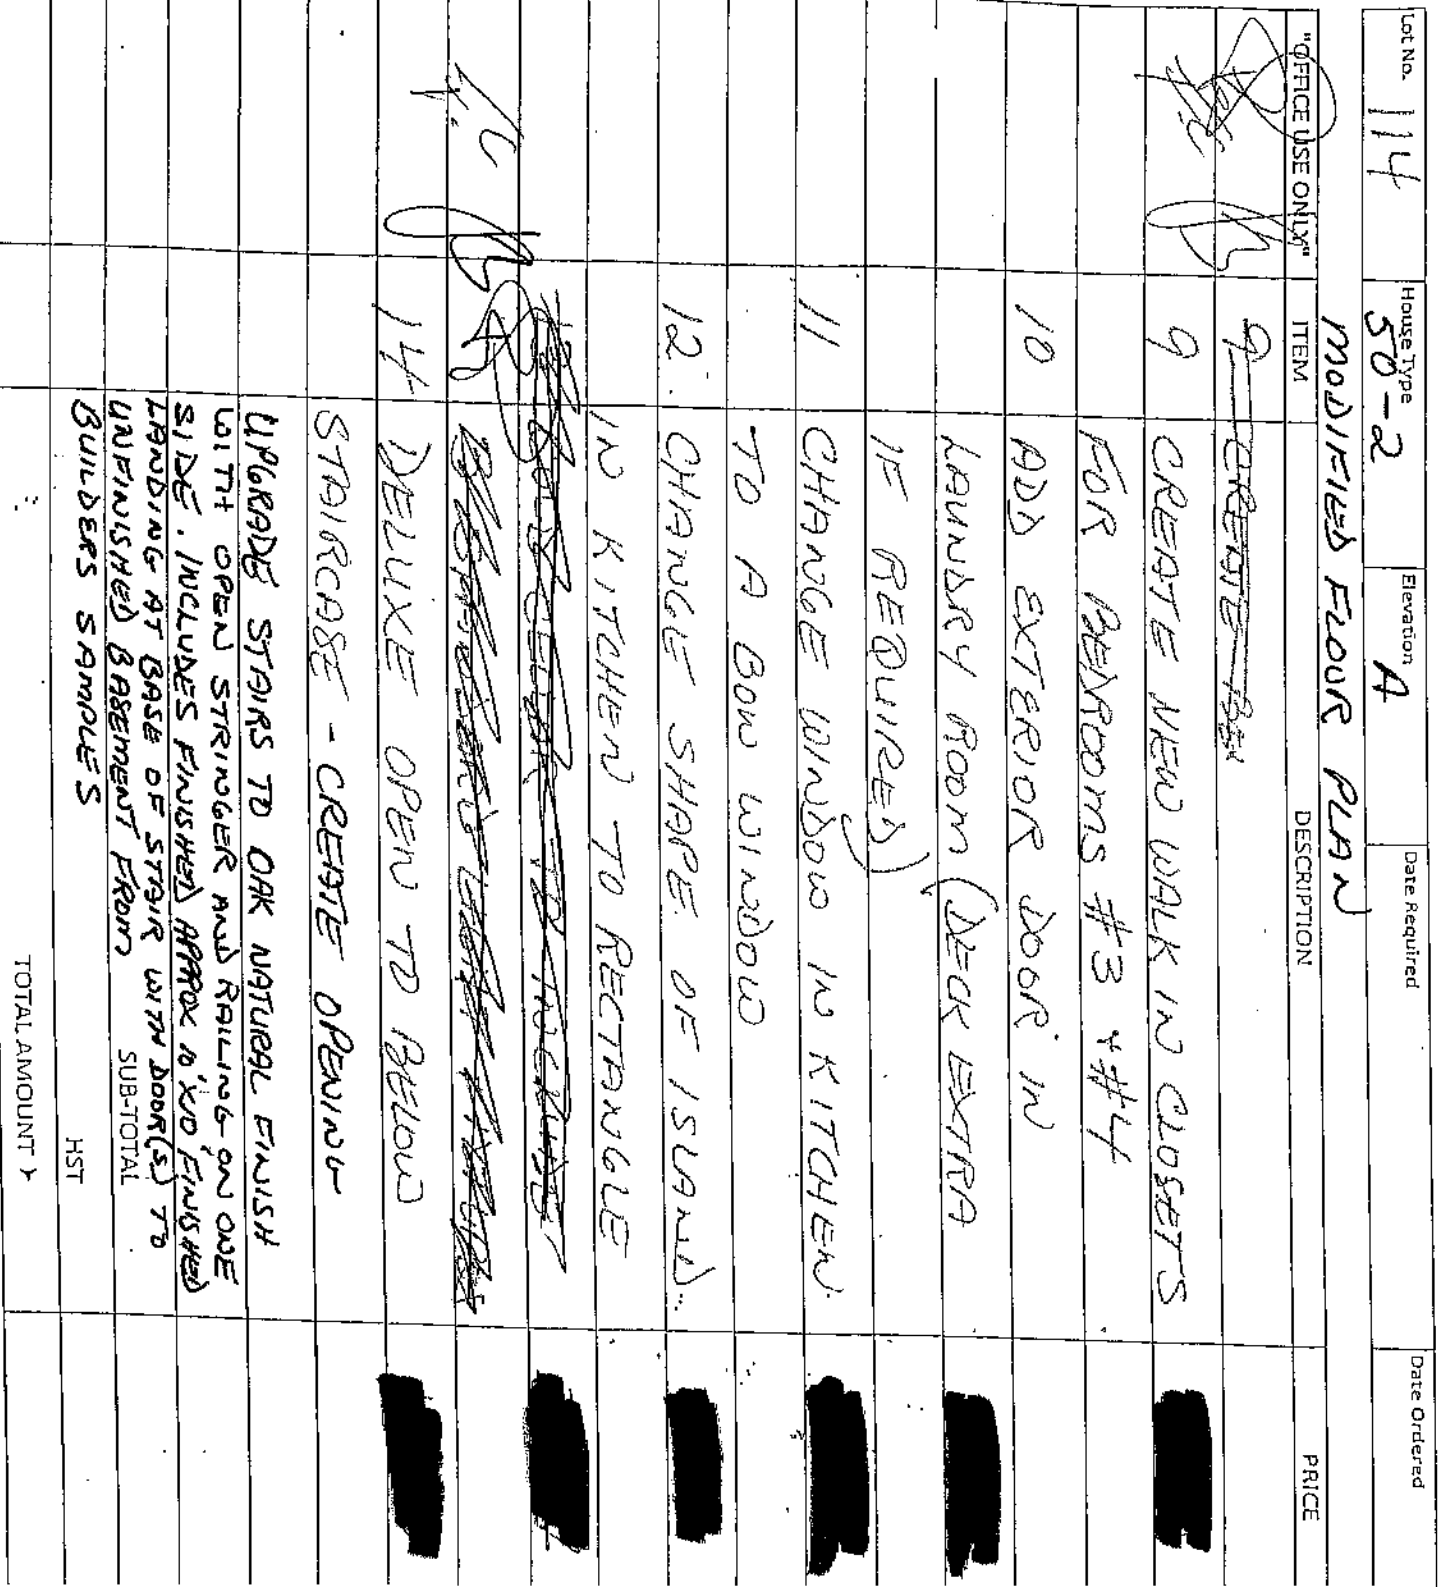 Lot No. 114 House Type 50-2 Elevation A Date Required Date Ordered
MODIFIED FLOUR PLAN
"OFFICE USE ONLY" ITEM DESCRIPTION PRICE
9 CREATE
9 CREATE NEW WALK IN CLOSETS
FOR BEDROOMS #3 & #4
10 ADD EXTERIOR DOOR IN
LAUNDRY ROOM (DECK EXTRA
IF REQUIRED)
11 CHANGE WINDOW IN KITCHEN
TO A BOW WINDOW
12. CHANGE SHAPE OF ISLAND
IN KITCHEN TO RECTANGLE
14 DELUXE OPEN TO BELOW
STAIRCASE - CREATE OPENING
UPGRADE STAIRS TO OAK NATURAL FINISH
WITH OPEN STRINGER AND RAILING ON ONE
SIDE. INCLUDES FINISHED APPROX 10'X10 FINISHED
LANDING AT BASE OF STAIR WITH DOOR(S) TO
UNFINISHED BASEMENT FROM SUB-TOTAL
BUILDERS SAMPLES
HST
TOTAL AMOUNT